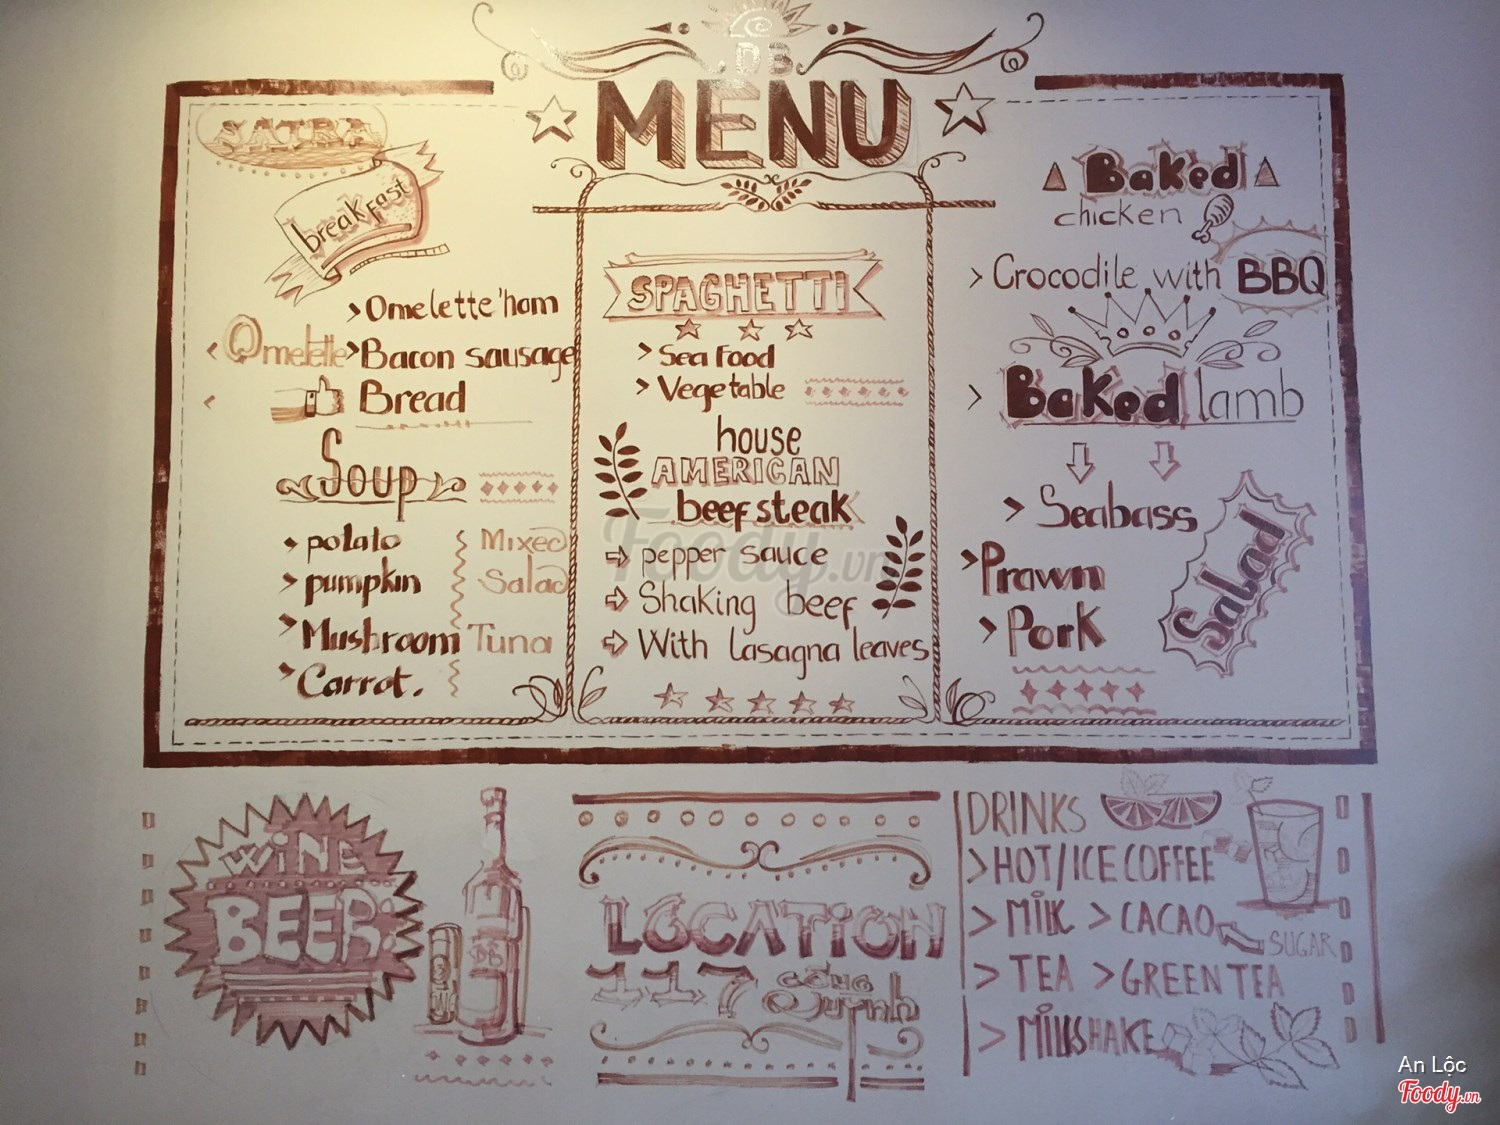 DB
MENU
SATRA
breakfast
> Omelette 'ham
< Omelette > Bacon sausage
< Bread
Soup
potato
> pumpkin
Mushroom
Carrot.
Mixed
Salad
Tuna
SPAGHETTI
> Sea Food
> Vegetable
house
AMERICAN
beefsteak
pepper sauce
Shaking beef
With lasagna leaves
Baked
chicken
> Crocodile with BBQ
> Baked lamb
> Seabass
> Prawn
> Pork
Salad
WiNE
BEER:
DB
LOCATiON
117 Cống
Quỳnh
DRINKS
> HOT/ICE COFFEE
> MiLK > CACAO
SUGAR
> TEA > GREEN TEA
> MiLKSHAKE
Foody.vn
An Lộc
Foody.vn